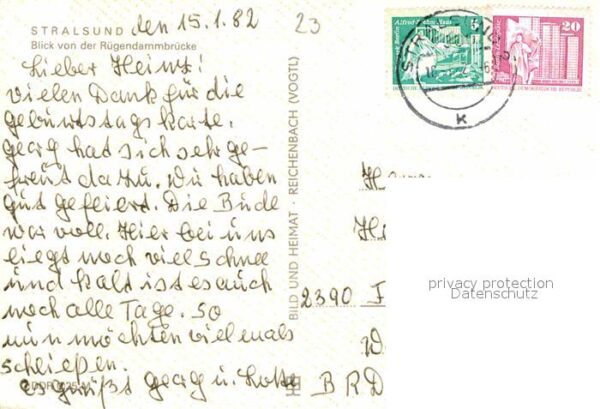 STRALSUND den 15.1.82
23
Blick von der Rügendammbrücke
Lieber Heinz!
Vielen Dank für die
geburtstagskarte.
georg hat sich sehr ge-
freut dazu. Wir haben
gut gefeiert. Die Bude
war voll. Hier bei uns
liegt noch viel schnee
und kalt ist es auch
noch alle Tage. so
nun möchten viel mals
schließen.
es grüßt georg u.
BILD UND HEIMAT · REICHENBACH (VOGTL)
5
20
DEUTSCHE DEMOKRATISCHE REPUBLIK
K
2390 F
W
BRD
privacy protection
Datenschutz